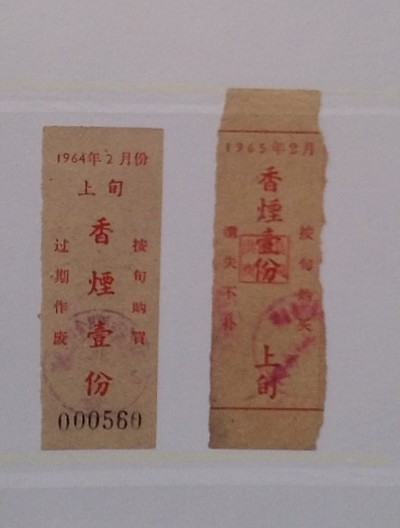 1964年2月份
上旬
按旬购買
香煙壹份
过期作廢
000560
1965年2月
按旬购买
香煙壹份
上旬
遺失不补